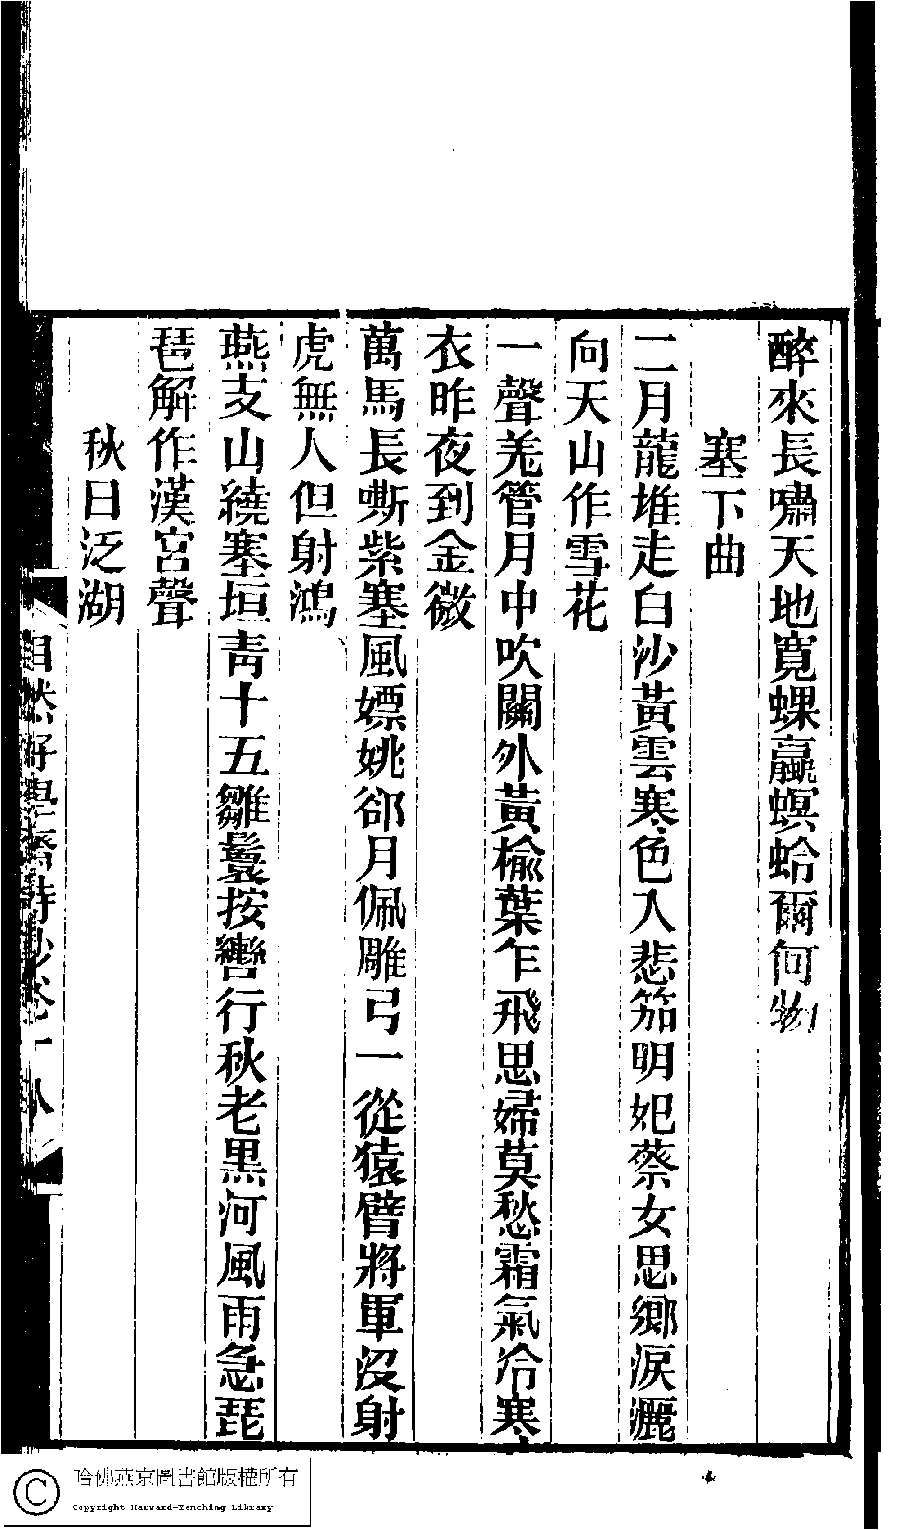 醉來長嘯天地寬蜾蠃螟蛉爾何物
塞下曲
二月龍堆走白沙黃雲寒色入悲笳明妃蔡女思鄉淚灑
向天山作雪花
一聲羗管月中吹關外黃榆葉乍飛思婦莫愁霜氣冷寒
衣昨夜到金微
萬馬長嘶紫塞風嫖姚卻月佩雕弓一從猿臂將軍沒射
虎無人但射鴻
燕支山繞塞垣靑十五雛鬟按轡行秋老黑河風雨急琵
琶解作漢宮聲
秋日泛湖
自然好學齋詩鈔卷一
哈佛燕京圖書館版權所有
Copyright Harvard-Yenching Library